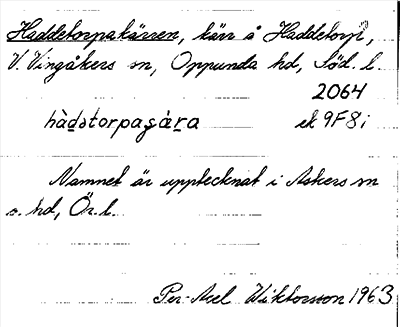 Haddetorpakärren, kärr å Haddetorp,
V. Vingåkers sn, Oppunda hd, Söd. l.
2064
hàdstorpaʂára ek 9F8i
Namnet är upptecknat i Askers sn
o. hd, Ör. l.
Per-Axel Wiktorsson 1963